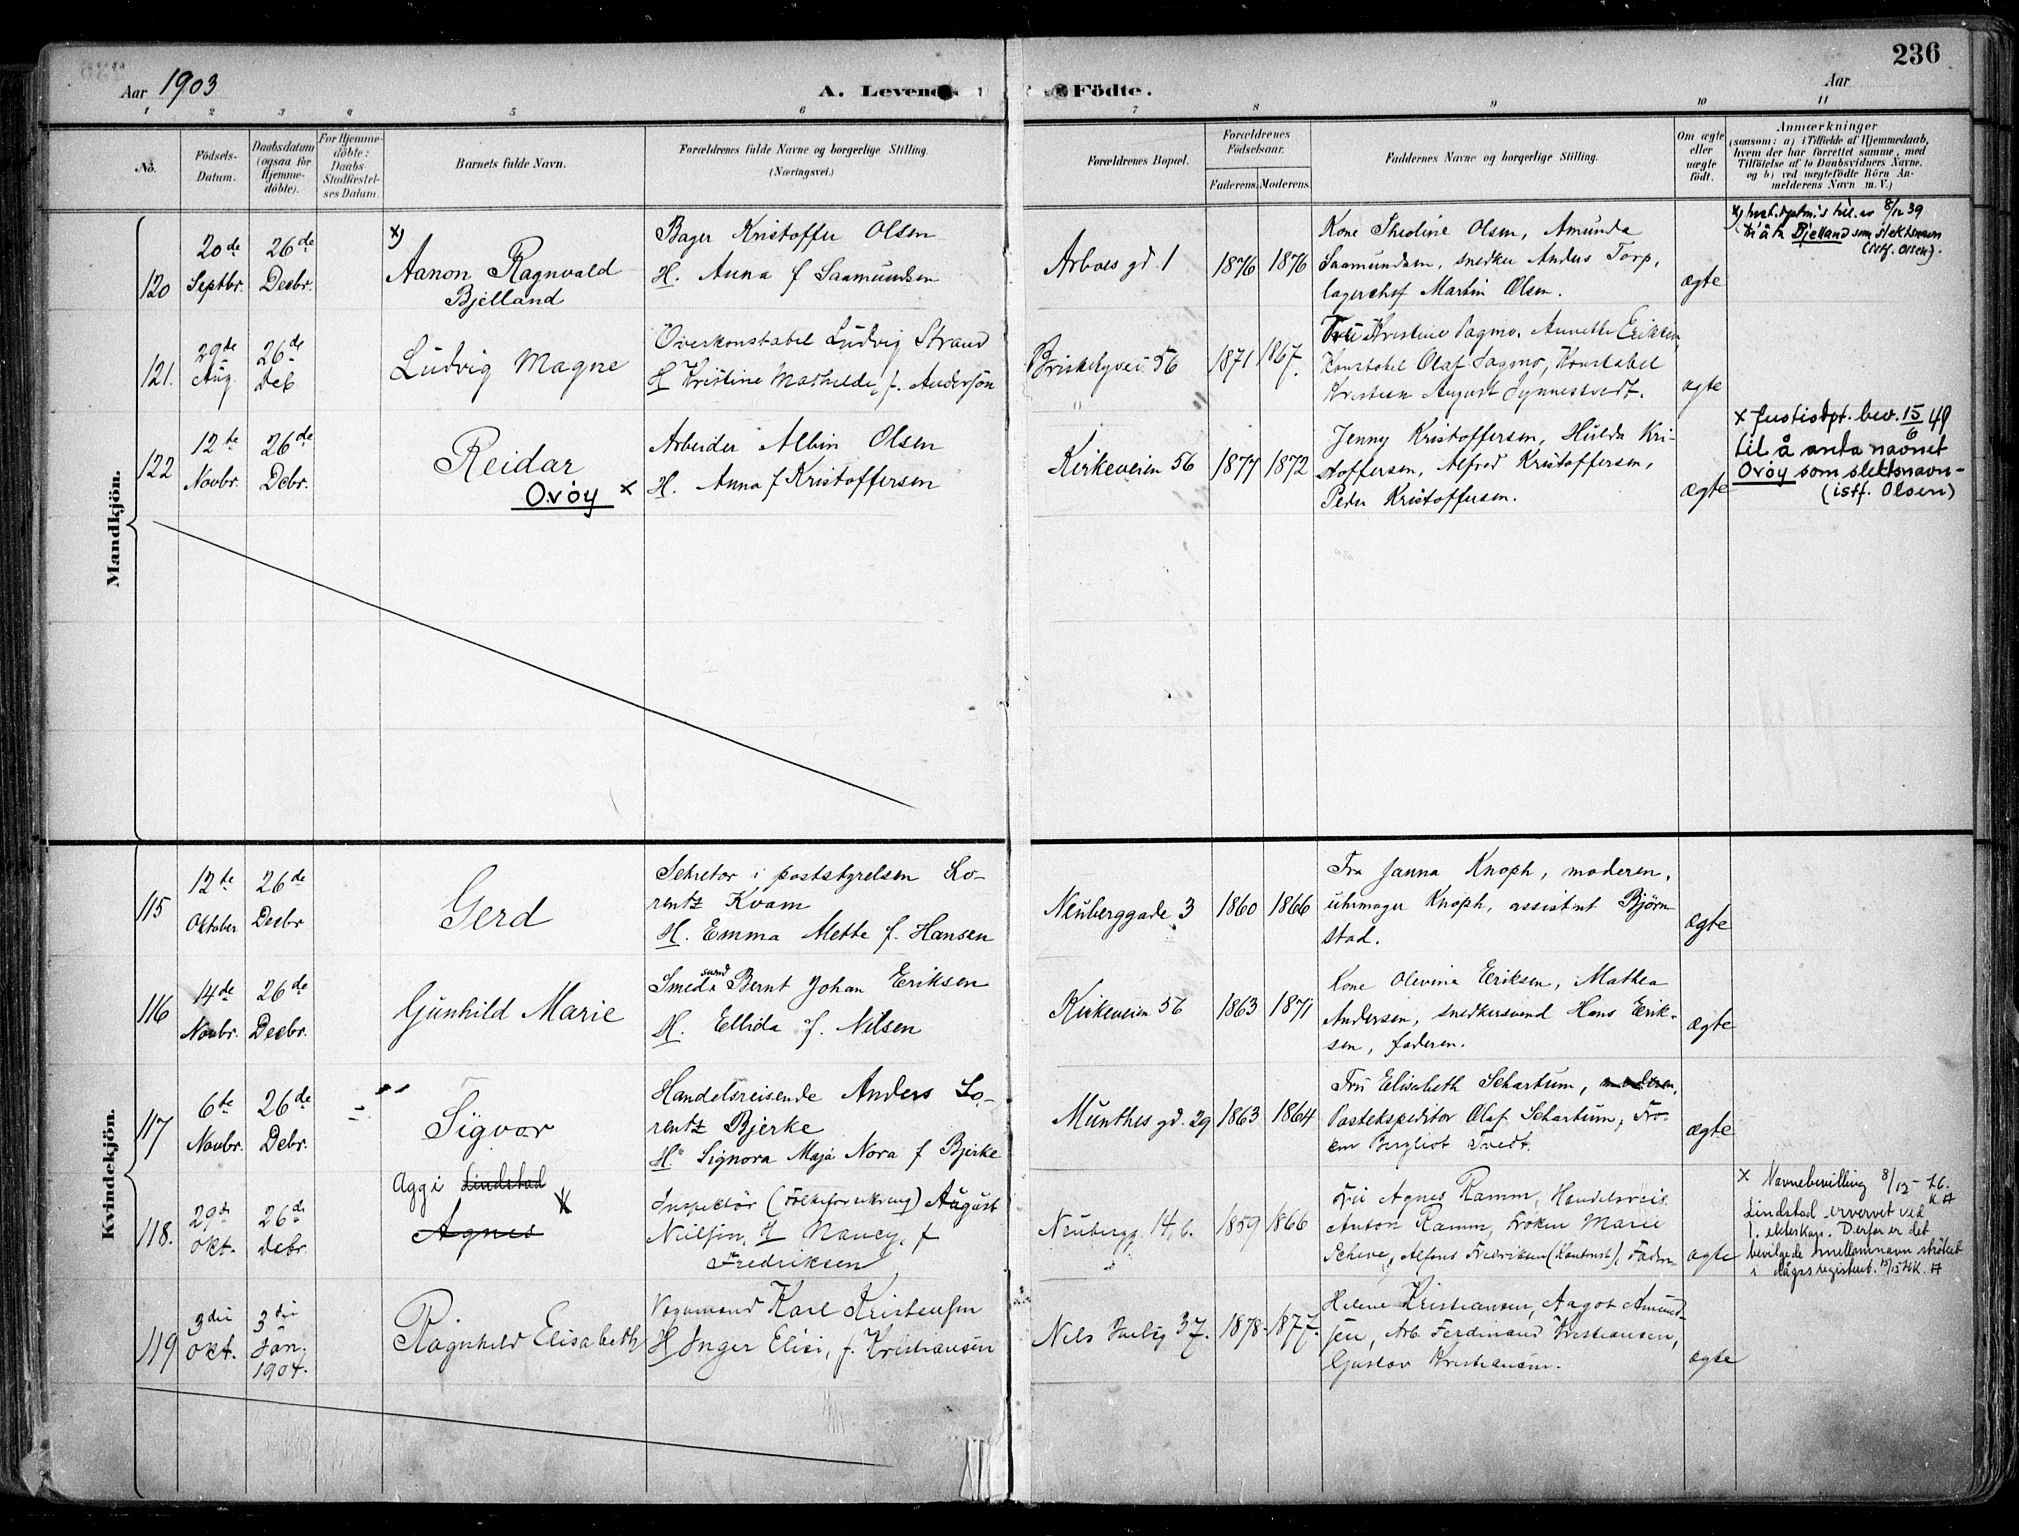 236
Aar 1903
A. Levende Födte.
Aar
1 2 3 4 5 6 7 8 9 10 11
No.
Födsels-Datum.
Daabsdatum (ogsaa for Hjemmedöbte).
For Hjemmedöbte: Daabs Stadfæstelses Datum.
Barnets fulde Navn.
Forældrenes fulde Navne og borgerlige Stilling. (Næringsvei.)
Forældrenes Bopæl.
Forældrenes Födselsaar.
Faderens. Moderens.
Faddernes Navne og borgerlige Stilling.
Om ægte eller uægte födt.
Anmærkninger
(saasom: a) i Tilfælde af Hjemmedaab,
hvem der har forrettet samme, med
Tilföielse af to Daabsvidners Navne.
og b) ved uægtefödte Börn Anmelderens Navn m. V.)
Mandkjön.
120
20de Septbr.
26de Decbr.
x)
Aanon Ragnvald
Bjelland
Bager Kristoffer Olsen
H. Anna f Saamundsen
Arboes gd. 1
1876 1876
Kone Theoline Olsen, Amunda
Saamundsen, snedker Anders Torp,
lagerchef Martin Olsen.
ægte
8/12 39
Bjelland som slektsnavn
(istf. Olsen).
121.
29de Aug.
26de Deb
Ludvig Magne
Overkonstabel Ludvig Strand
H Kristine Mathilde, f. Anderson
Briskebyvei 56
1871 1867.
Fru Kristine Dagmo, Annette Eriksen,
Konstabel Olaf Dagmo, Konstabel
Kristian August
ægte
122
12te Novbr.
26de Debr.
Reidar
Ovöy x
Arbeider Albin Olsen
H. Anna f Kristoffersen
Kirkeveien 56
1877 1872
Jenny Kristoffersen, Hulda Kri-
stoffersen, Alfred Kristoffersen,
Peder Kristoffersen.
ægte
x Justisdpt. bev. 15/6 49
til å anta navnet
Ovöy som slektsnavn-
(istf. Olsen)
Kvindekjön.
115
12te Oktober
26de Decbr
Gerd
Sekretær i poststyrelsen Lo-
rentz Kvam
H. Emma Mette f. Hansen
Neuberggade 3
1860 1866
Fru Janna Knoph, moderen,
uhrmager Knoph, assistent Björn-
stad.
ægte
116
14de Novbr.
26de Decbr.
Gunhild Marie
Smedsvend Bernt Johan Eriksen
H. Ellida f. Nilsen
Kirkeveien 56
1863 1871
Kone Olevine Eriksen, Mathea
Andersen, snedkersvend Hans Erik-
sen, faderen.
ægte
117
6te Novbr.
26de Debr.
Sigvor
Handelsreisende Anders Lo-
rentz Bjerke
H. Signora Maja Nora f Bjerke
Munthes gd. 29
1863 1864
Fru Elisabeth Schartum, moderen,
Postekspeditör Olaf Schartum, Frö-
ken Bergliot Tvedt.
ægte
118.
29de Okt.
26de Debr.
Aggi Lindstad x
Agnes
Inspektör (Folkeforsikring) August
Neilson, H Nancy, f
Fredriksen
Neubergg 14, b.
1859 1866
Fru Agnes Ramm, Handelsreis.
Anton Ramm, Fröken Marie
Scheve, Alfons Fredriksen (Kontorist), Faderen
ægte
x Navnebevilling 8/12-26.
Lindstad ervervet ved
1. ekteskap. Derfor er det
bevilgede mellemnavn ströket
i dåpsregisteret.
119
3die Okt.
3die Jan. 1904.
Ragnhild Elisabeth
Vognmand Karl Kristensen
H Inger Elisi, f. Kristiansen
Nels Juels g 37.
1878- 1877.
Helene Kristiansen, Aagot Amund-
sen, Arb. Ferdinand Kristiansen,
Gustav Kristiansen.
ægte